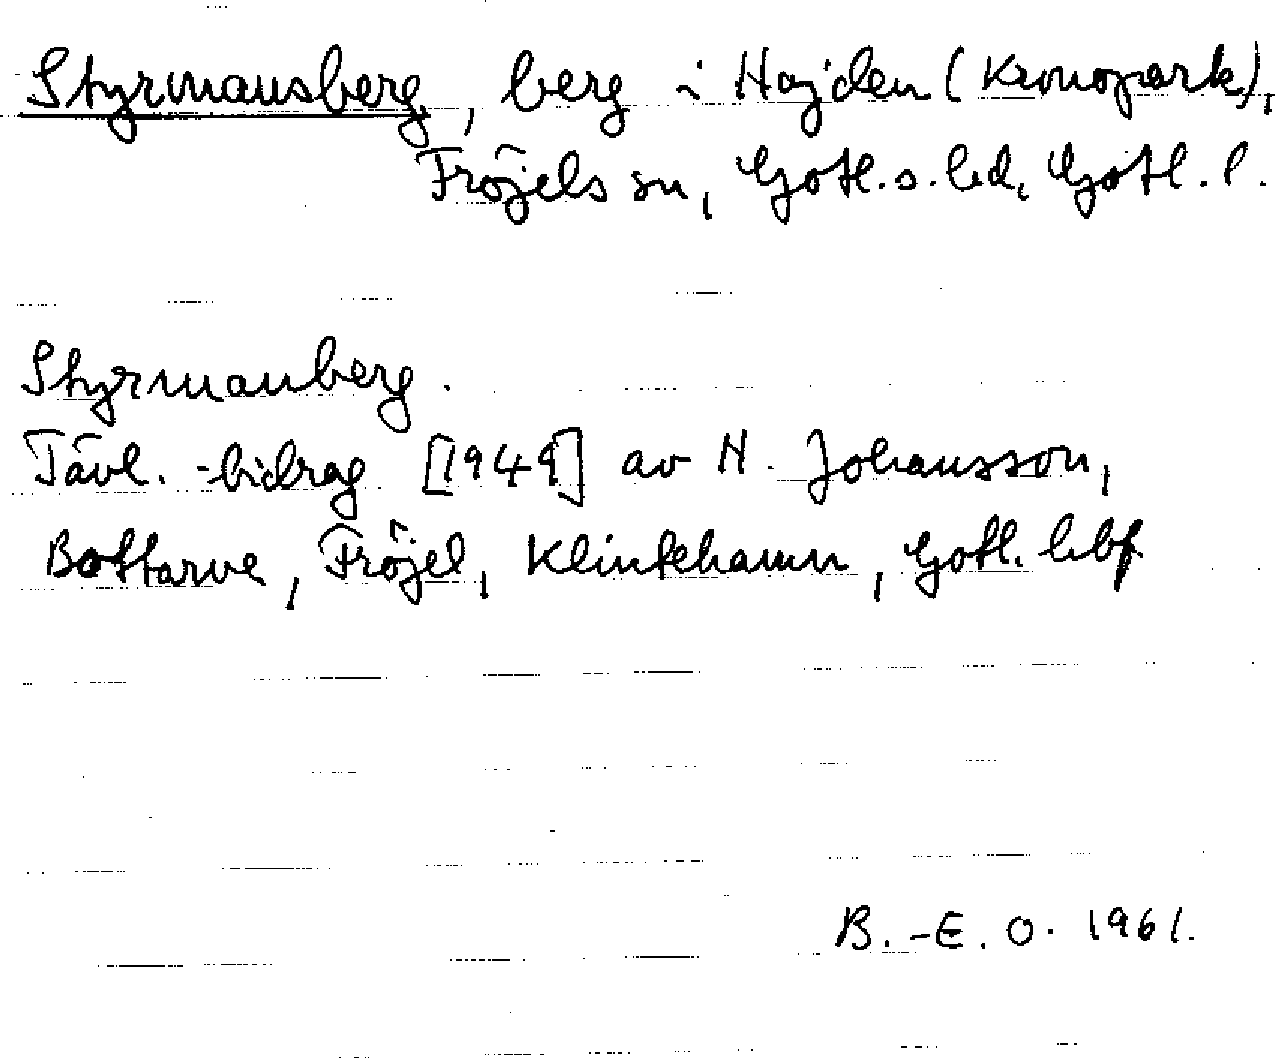 Styrmansberg, berg i Hajden (Kronopark),
Fröjels sn, Gotl. s. hd, Gotl. l.
Styrmanberg.
Tävl. -bidrag [1949] av H. Johansson,
Bottarve, Fröjel, Klintehamn, Gotl. hbf
B.-E. O. 1961.